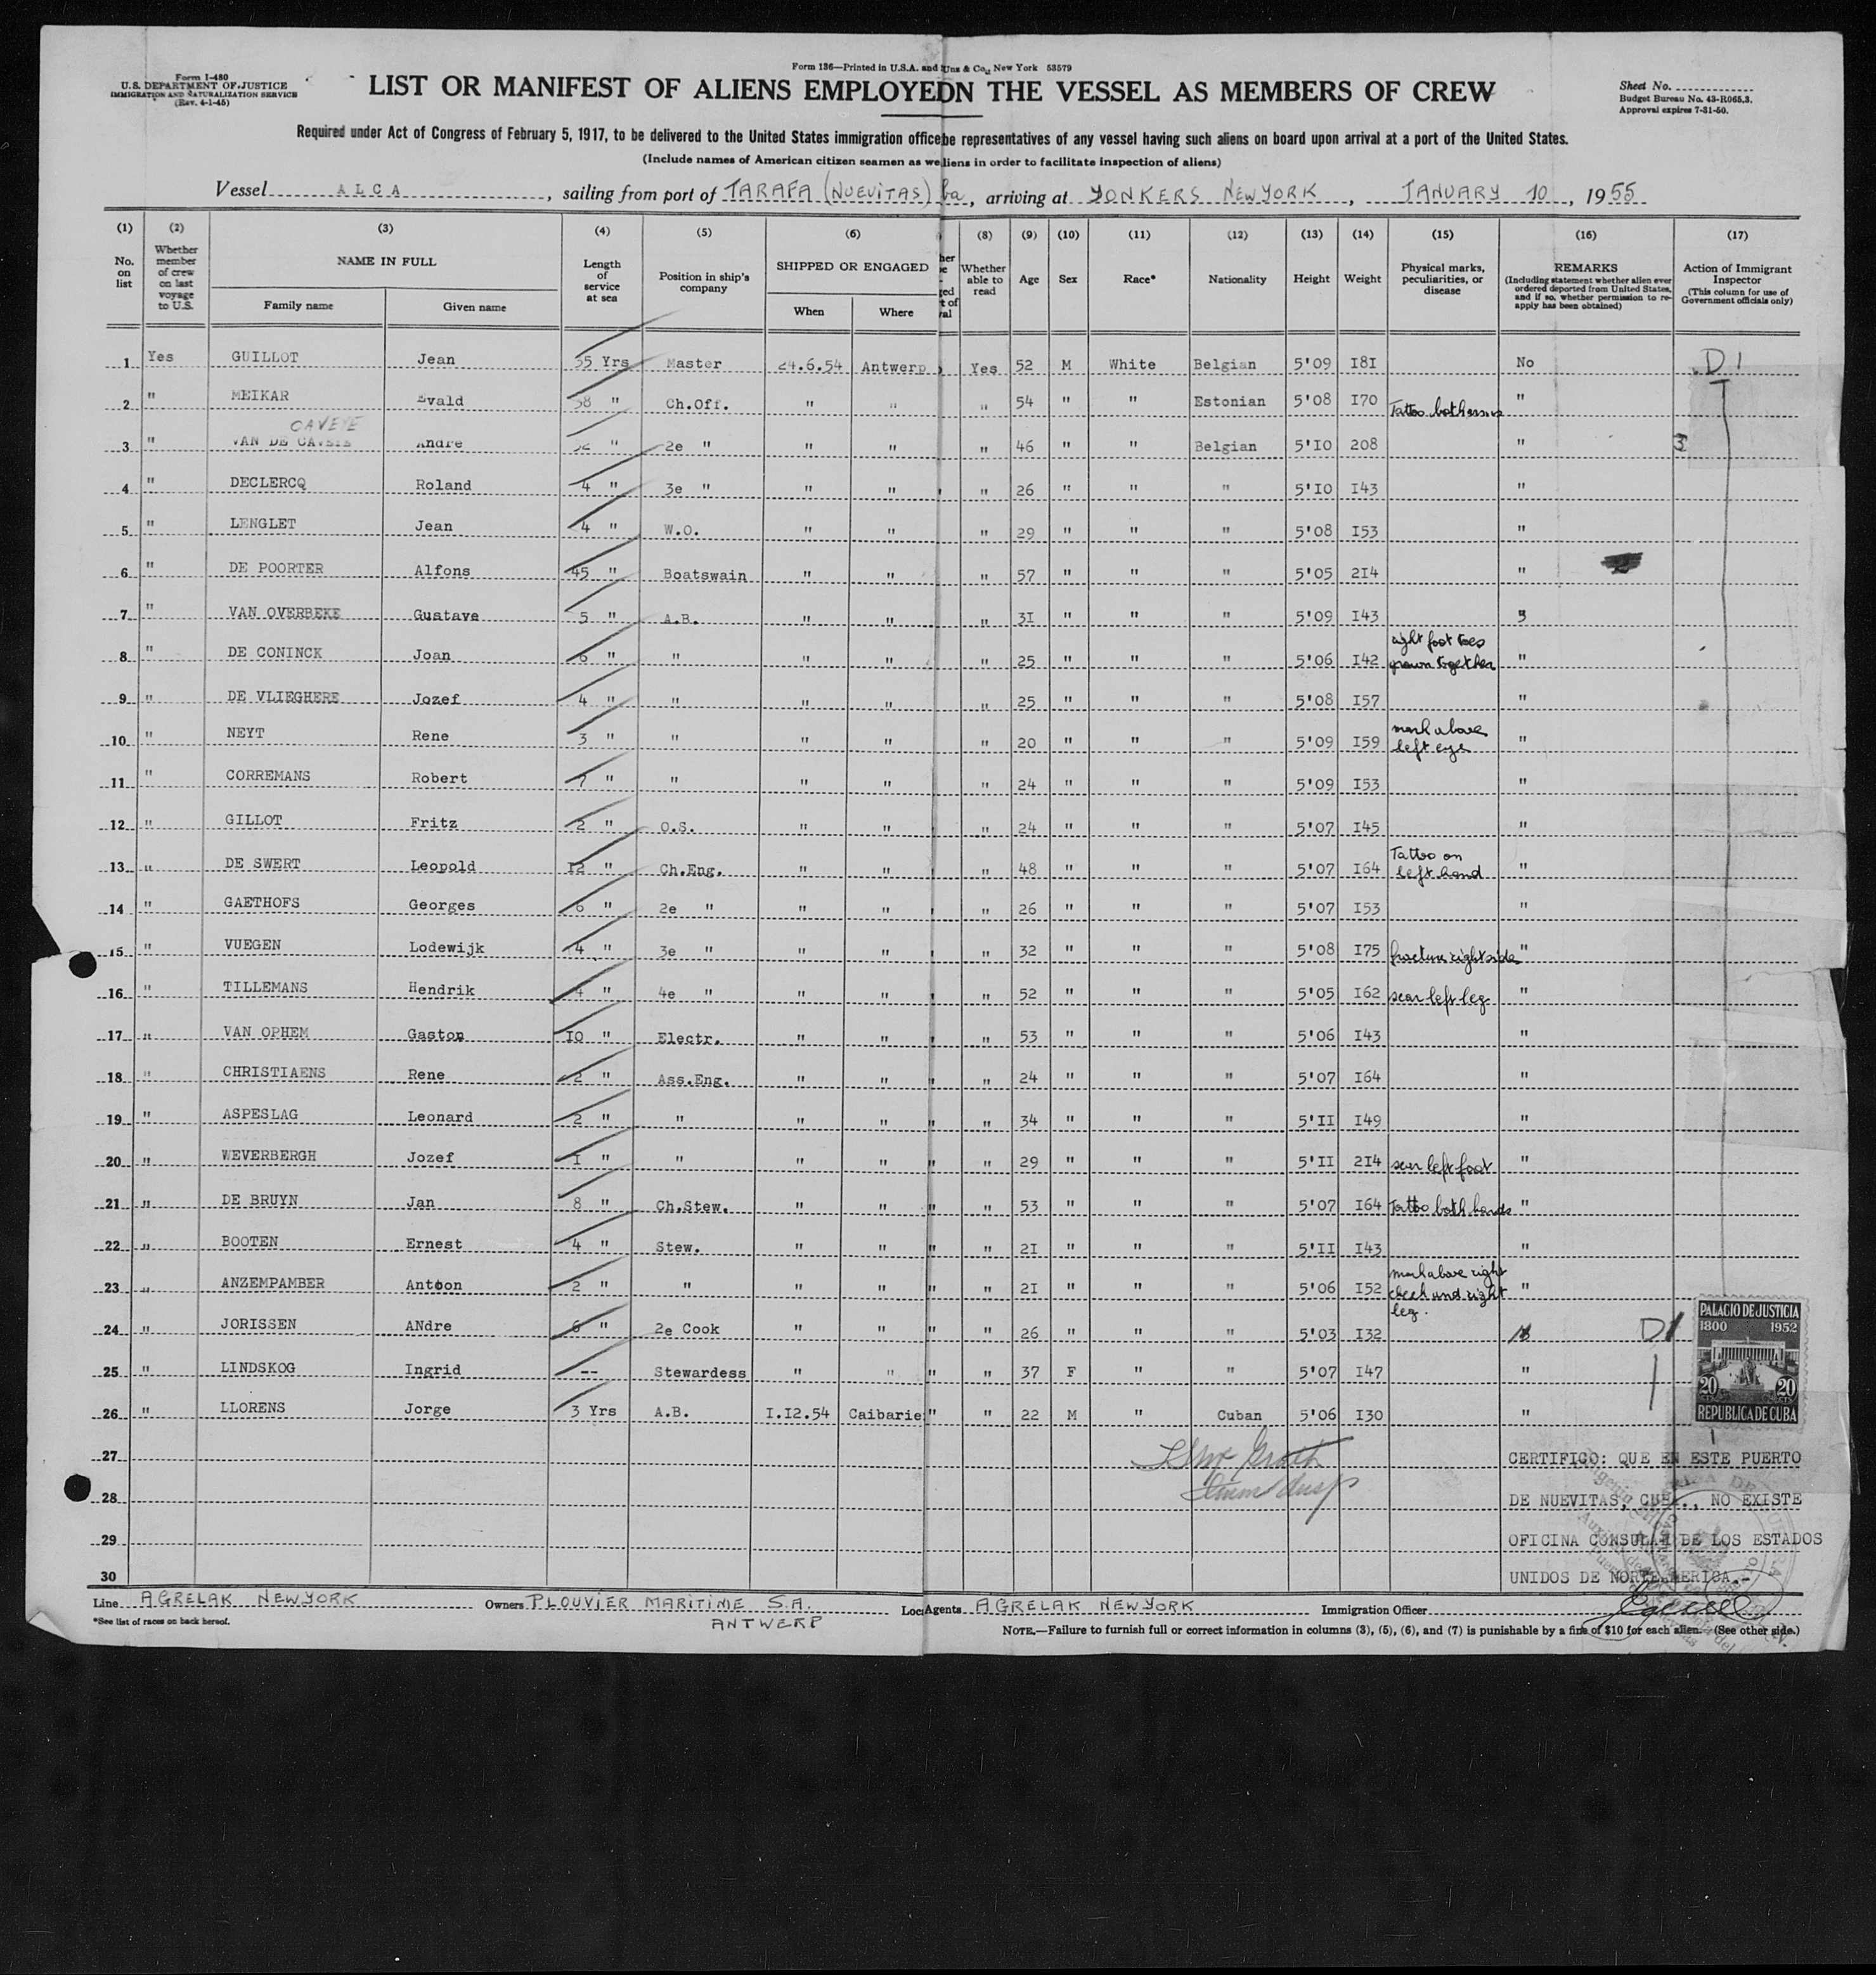 Form I-480
U.S. DEPARTMENT OF JUSTICE
IMMIGRATION AND NATURALIZATION SERVICE
(Rev. 4-1-45)
Form 136—Printed in U.S.A. and Uns & Co., New York 53579
LIST OR MANIFEST OF ALIENS EMPLOYED ON THE VESSEL AS MEMBERS OF CREW
Sheet No.
Budget Bureau No. 43-R065.3.
Approval expires 7-31-50.
Required under Act of Congress of February 5, 1917, to be delivered to the United States immigration office be representatives of any vessel having such aliens on board upon arrival at a port of the United States.
(Include names of American citizen seamen as we liens in order to facilitate inspection of aliens)
Vessel ALCA, sailing from port of TARAFA (NUEVITAS) ba, arriving at YONKERS NEW YORK, JANUARY 10, 1955
(1) (2) (3) (4) (5) (6) (8) (9) (10) (11) (12) (13) (14) (15) (16) (17)
No. on list
Whether member of crew on last voyage to U.S.
NAME IN FULL
Family name
Given name
Length of service at sea
Position in ship's company
SHIPPED OR ENGAGED
When
Where
Whether able to read
Age
Sex
Race*
Nationality
Height
Weight
Physical marks, peculiarities, or disease
REMARKS
(Including statement whether alien ever ordered deported from United States, and if so, whether permission to re-apply has been obtained)
Action of Immigrant Inspector
(This column for use of Government officials only)
1 Yes GUILLOT Jean 35 Yrs Master 24.6.54 Antwerp Yes 52 M White Belgian 5'09 I8I No D1
2 " MEIKAR Evald 38 " Ch.Off. " " " 54 " " Estonian 5'08 I70 Tattoo both arms "
CAVEYE
3 " VAN DE CAVEIE Andre " 2e " " " " 46 " " Belgian 5'IO 208 " 3
4 " DECLERCQ Roland 4 " 3e " " " " 26 " " " 5'IO I43 "
5 " LENGLET Jean 4 " W.O. " " " 29 " " " 5'08 I53 "
6 " DE POORTER Alfons 45 " Boatswain " " " 57 " " " 5'05 2I4 "
7 " VAN OVERBEKE Gustave 5 " A.B. " " " 3I " " " 5'09 I43 "
8 " DE CONINCK Joan 6 " " " " " 25 " " " 5'06 I42 right foot toes grown together "
9 " DE VLIEGHERE Jozef 4 " " " " " 25 " " " 5'08 I57 "
10 " NEYT Rene 3 " " " " " 20 " " " 5'09 I59 mark above left eye "
11 " CORREMANS Robert 7 " " " " " 24 " " " 5'09 I53 "
12 " GILLOT Fritz 2 " O.S. " " " 24 " " " 5'07 I45 "
13 " DE SWERT Leopold I2 " Ch.Eng. " " " 48 " " " 5'07 I64 Tattoo on left hand "
14 " GAETHOFS Georges 6 " 2e " " " " 26 " " " 5'07 I53 "
15 " VUEGEN Lodewijk 4 " 3e " " " " 32 " " " 5'08 I75 fracture right side "
16 " TILLEMANS Hendrik 4 " 4e " " " " 52 " " " 5'05 I62 scar left leg "
17 " VAN OPHEM Gaston IO " Electr. " " " 53 " " " 5'06 I43 "
18 " CHRISTIAENS Rene 2 " Ass.Eng. " " " 24 " " " 5'07 I64 "
19 " ASPESLAG Leonard 2 " " " " " 34 " " " 5'II I49 "
20 " WEVERBERGH Jozef I " " " " " 29 " " " 5'II 2I4 scar left foot "
21 " DE BRUYN Jan 8 " Ch.Stew. " " " 53 " " " 5'07 I64 Tattoo both hands "
22 " BOOTEN Ernest 4 " Stew. " " " 2I " " " 5'II I43 "
23 " ANZEMPAMBER Antoon 2 " " " " " 2I " " " 5'06 I52 mark above right cheek and right leg. "
24 " JORISSEN ANdre 6 " 2e Cook " " " 26 " " " 5'03 I32 " D1
25 " LINDSKOG Ingrid -- Stewardess " " " 37 F " " 5'07 I47 "
26 " LLORENS Jorge 3 Yrs A.B. I.I2.54 Caibarie " " 22 M " Cuban 5'06 I30 "
27
28
29
30
PALACIO DE JUSTICIA
1800 1952
20 20
REPUBLICA DE CUBA
CERTIFICO: QUE EN ESTE PUERTO
DE NUEVITAS, CUBA., NO EXISTE
OFICINA CONSULAR DE LOS ESTADOS
UNIDOS DE NORTEAMERICA.-
Line AGRELAK NEW YORK Owners PLOUVIER MARITIME S.A. ANTWERP Loc Agents AGRELAK NEW YORK Immigration Officer
*See list of races on back hereof.
NOTE.—Failure to furnish full or correct information in columns (3), (5), (6), and (7) is punishable by a fine of $10 for each alien. (See other side.)